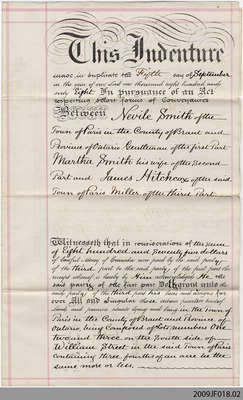 This Indenture
made in duplicate the Fifth day of September
in the year of our Lord one thousand eight hundred and ninety
Eight In pursuance of an Act
respecting short forms of Conveyances
Between Nevile Smith of the
Town of Paris in the County of Brant and
Province of Ontario Gentleman of the first Part
Martha Smith his wife of the Second
Part and James Hitchcox of the said
Town of Paris Miller of the third Part
Witnesseth that in consideration of the sum
of Eight hundred and Seventy five dollars
of lawful money of Canada now paid by the said party
of the third part to the said party of the first part the
receipt whereof is hereby by him acknowledged He the
said party of the first part Doth grant unto the
said party of the third part his heirs and assigns for
ever All and Singular those certain parcels or tracts of
land and premises situate lying and being in the Town of
Paris in the County of Brant and Province of
Ontario, being composed of Lots numbers One
two and three on the South side of
William Street in the said Town of Paris
containing three fourths of an acre be the
same more or less.
2009JF018.02